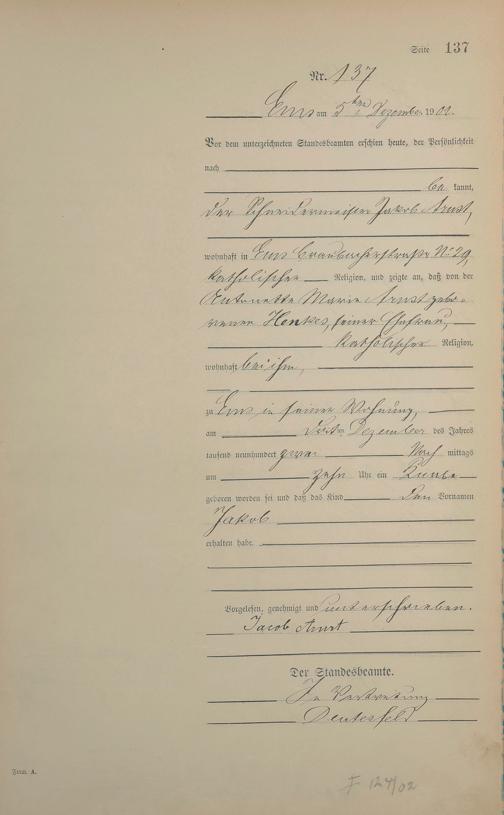 Seite 137
Nr. 137
Ems am 5ten Dezember 1902.
Vor dem unterzeichneten Standesbeamten erschien heute, der Persönlichkeit
nach
be kannt,
der Schneidermeister Jakob Arnst,
wohnhaft in Ems Braubacherstraße No 29,
katholischer Religion, und zeigte an, daß von der
Antonette Marie Arnst gebo-
renen Henkes, seiner Ehefrau,
katholischer Religion,
wohnhaft bei ihm,
zu Ems, in seiner Wohnung,
am dritten Dezember des Jahres
tausend neunhundert zwei Nach mittags
um zehn Uhr ein Knabe
geboren worden sei und daß das Kind den Vornamen
Jakob
erhalten habe.
Vorgelesen, genehmigt und unterschrieben.
Jacob Arnst
Der Standesbeamte.
In Vertretung
Form. A.
F 124/02